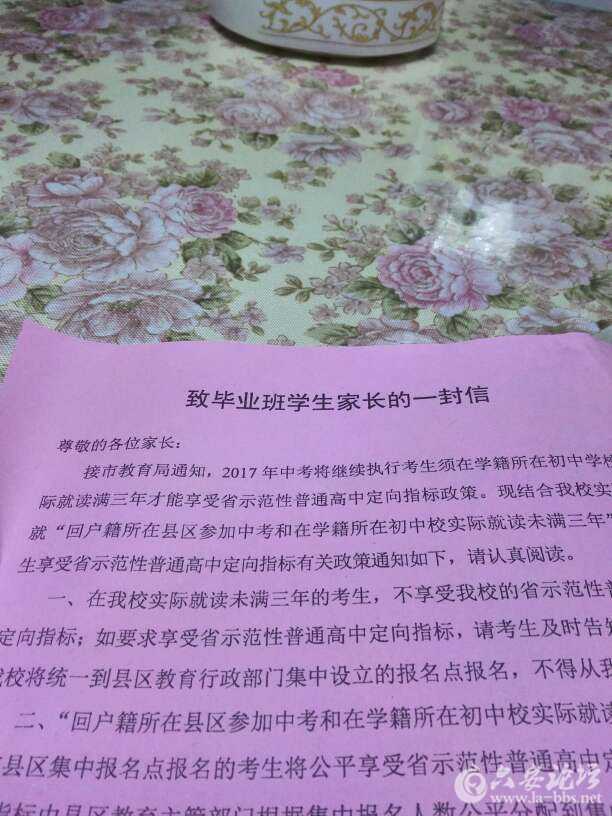 致毕业班学生家长的一封信
尊敬的各位家长：
接市教育局通知，2017年中考将继续执行考生须在学籍所在初中学校
际就读满三年才能享受省示范性普通高中定向指标政策。现结合我校实
就“回户籍所在县区参加中考和在学籍所在初中校实际就读未满三年”
生享受省示范性普通高中定向指标有关政策通知如下，请认真阅读。
一、在我校实际就读未满三年的考生，不享受我校的省示范性普
定向指标；如要求享受省示范性普通高中定向指标，请考生及时告知
我校将统一到县区教育行政部门集中设立的报名点报名，不得从我
二、“回户籍所在县区参加中考和在学籍所在初中校实际就读
县区集中报名点报名的考生将公平享受省示范性普通高中定
指标由县区教育主管部门根据集中报名人数公平分配到集
六安论坛
www.la-bbs.net